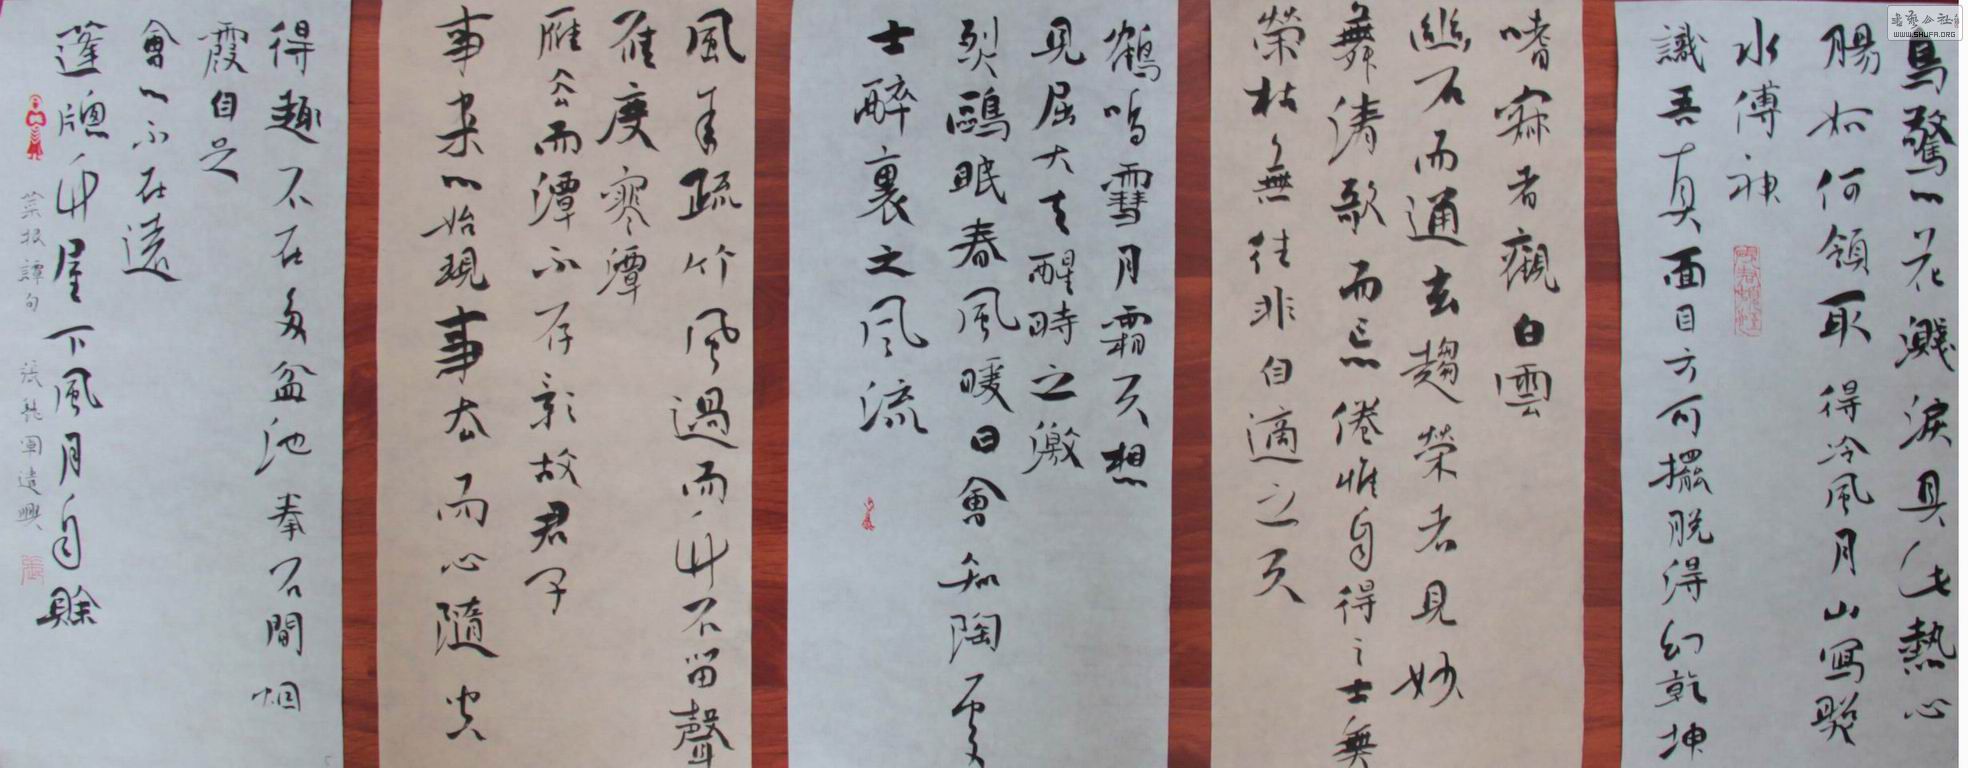 鳥驚心花濺淚具此熱心
腸如何領取得冷風月山寫照
水傳神
識吾真面目方可擺脫得幻乾坤
嗜寂者觀白雲
幽石而通玄趨榮者見妙
舞清歌而忘倦惟自得之士無
榮枯無往非自適之天
鶴鳴雪月霜天想
見屈大夫醒時之激
烈鷗眠春風暖日會知陶處
士醉裏之風流
風来疏竹風過而竹不留聲
雁度寒潭
雁去而潭不存影故君子
事来心始現事去而心隨空
得趣不在多盆池拳石間烟
霞自足
會心不在遠
蓬牕竹屋下風月自賒
菜根譚句 張龍軍遣興
WWW.SHUFA.ORG